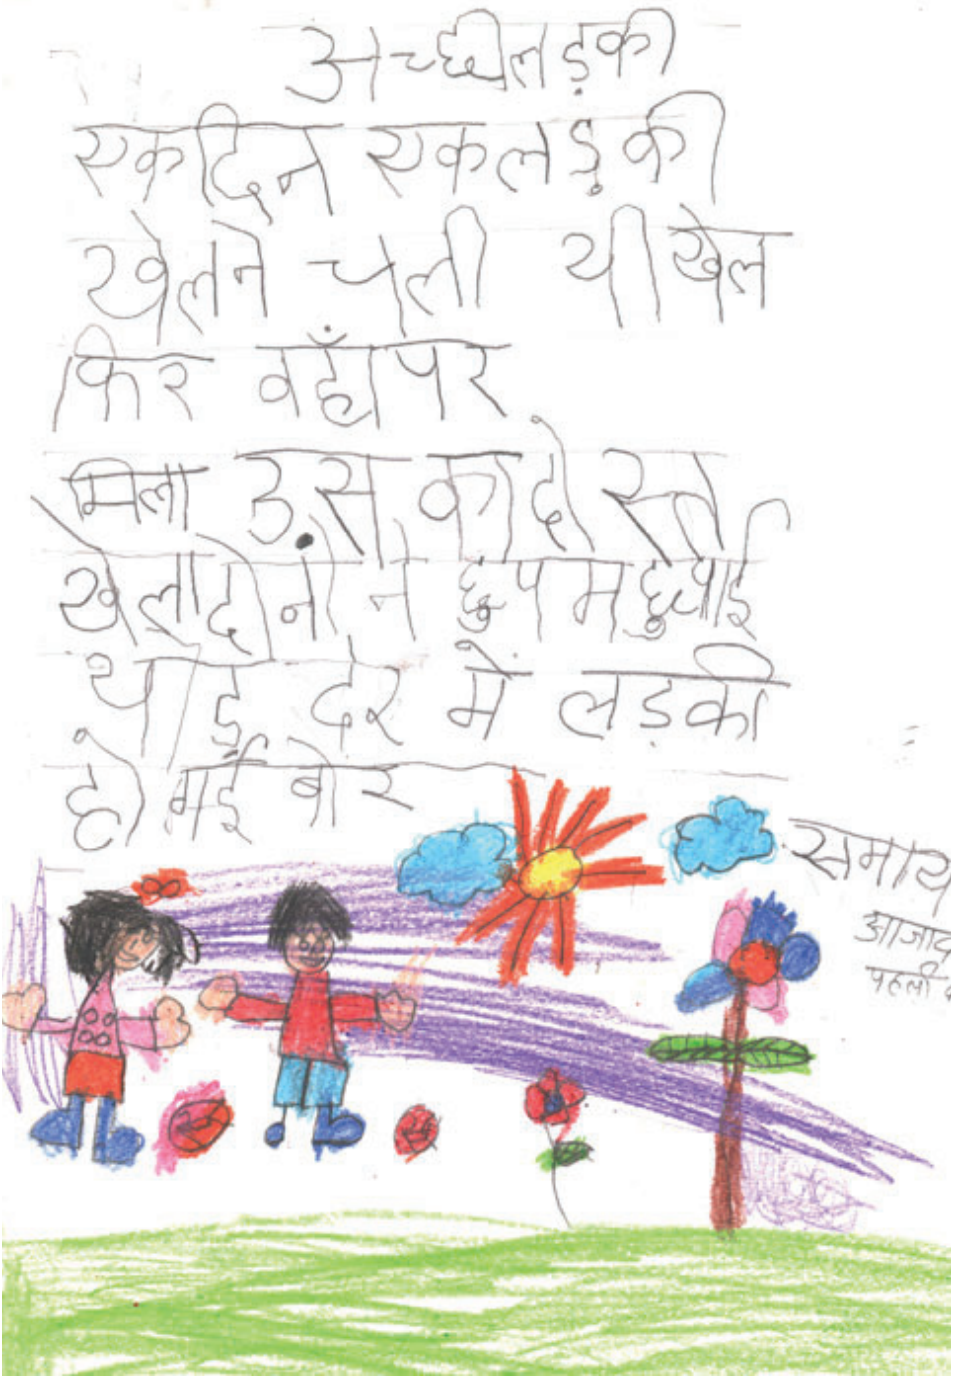 अच्छी लड़की
एक दिन एक लड़की
खेलने चली थी खेल
फिर वहाँ पर
मिला उस का दोस्त
खेला दोनों ने छुपम छुपाई
थोड़ देर में लड़की
हो गई बोर
समाय
आजाद
पहली